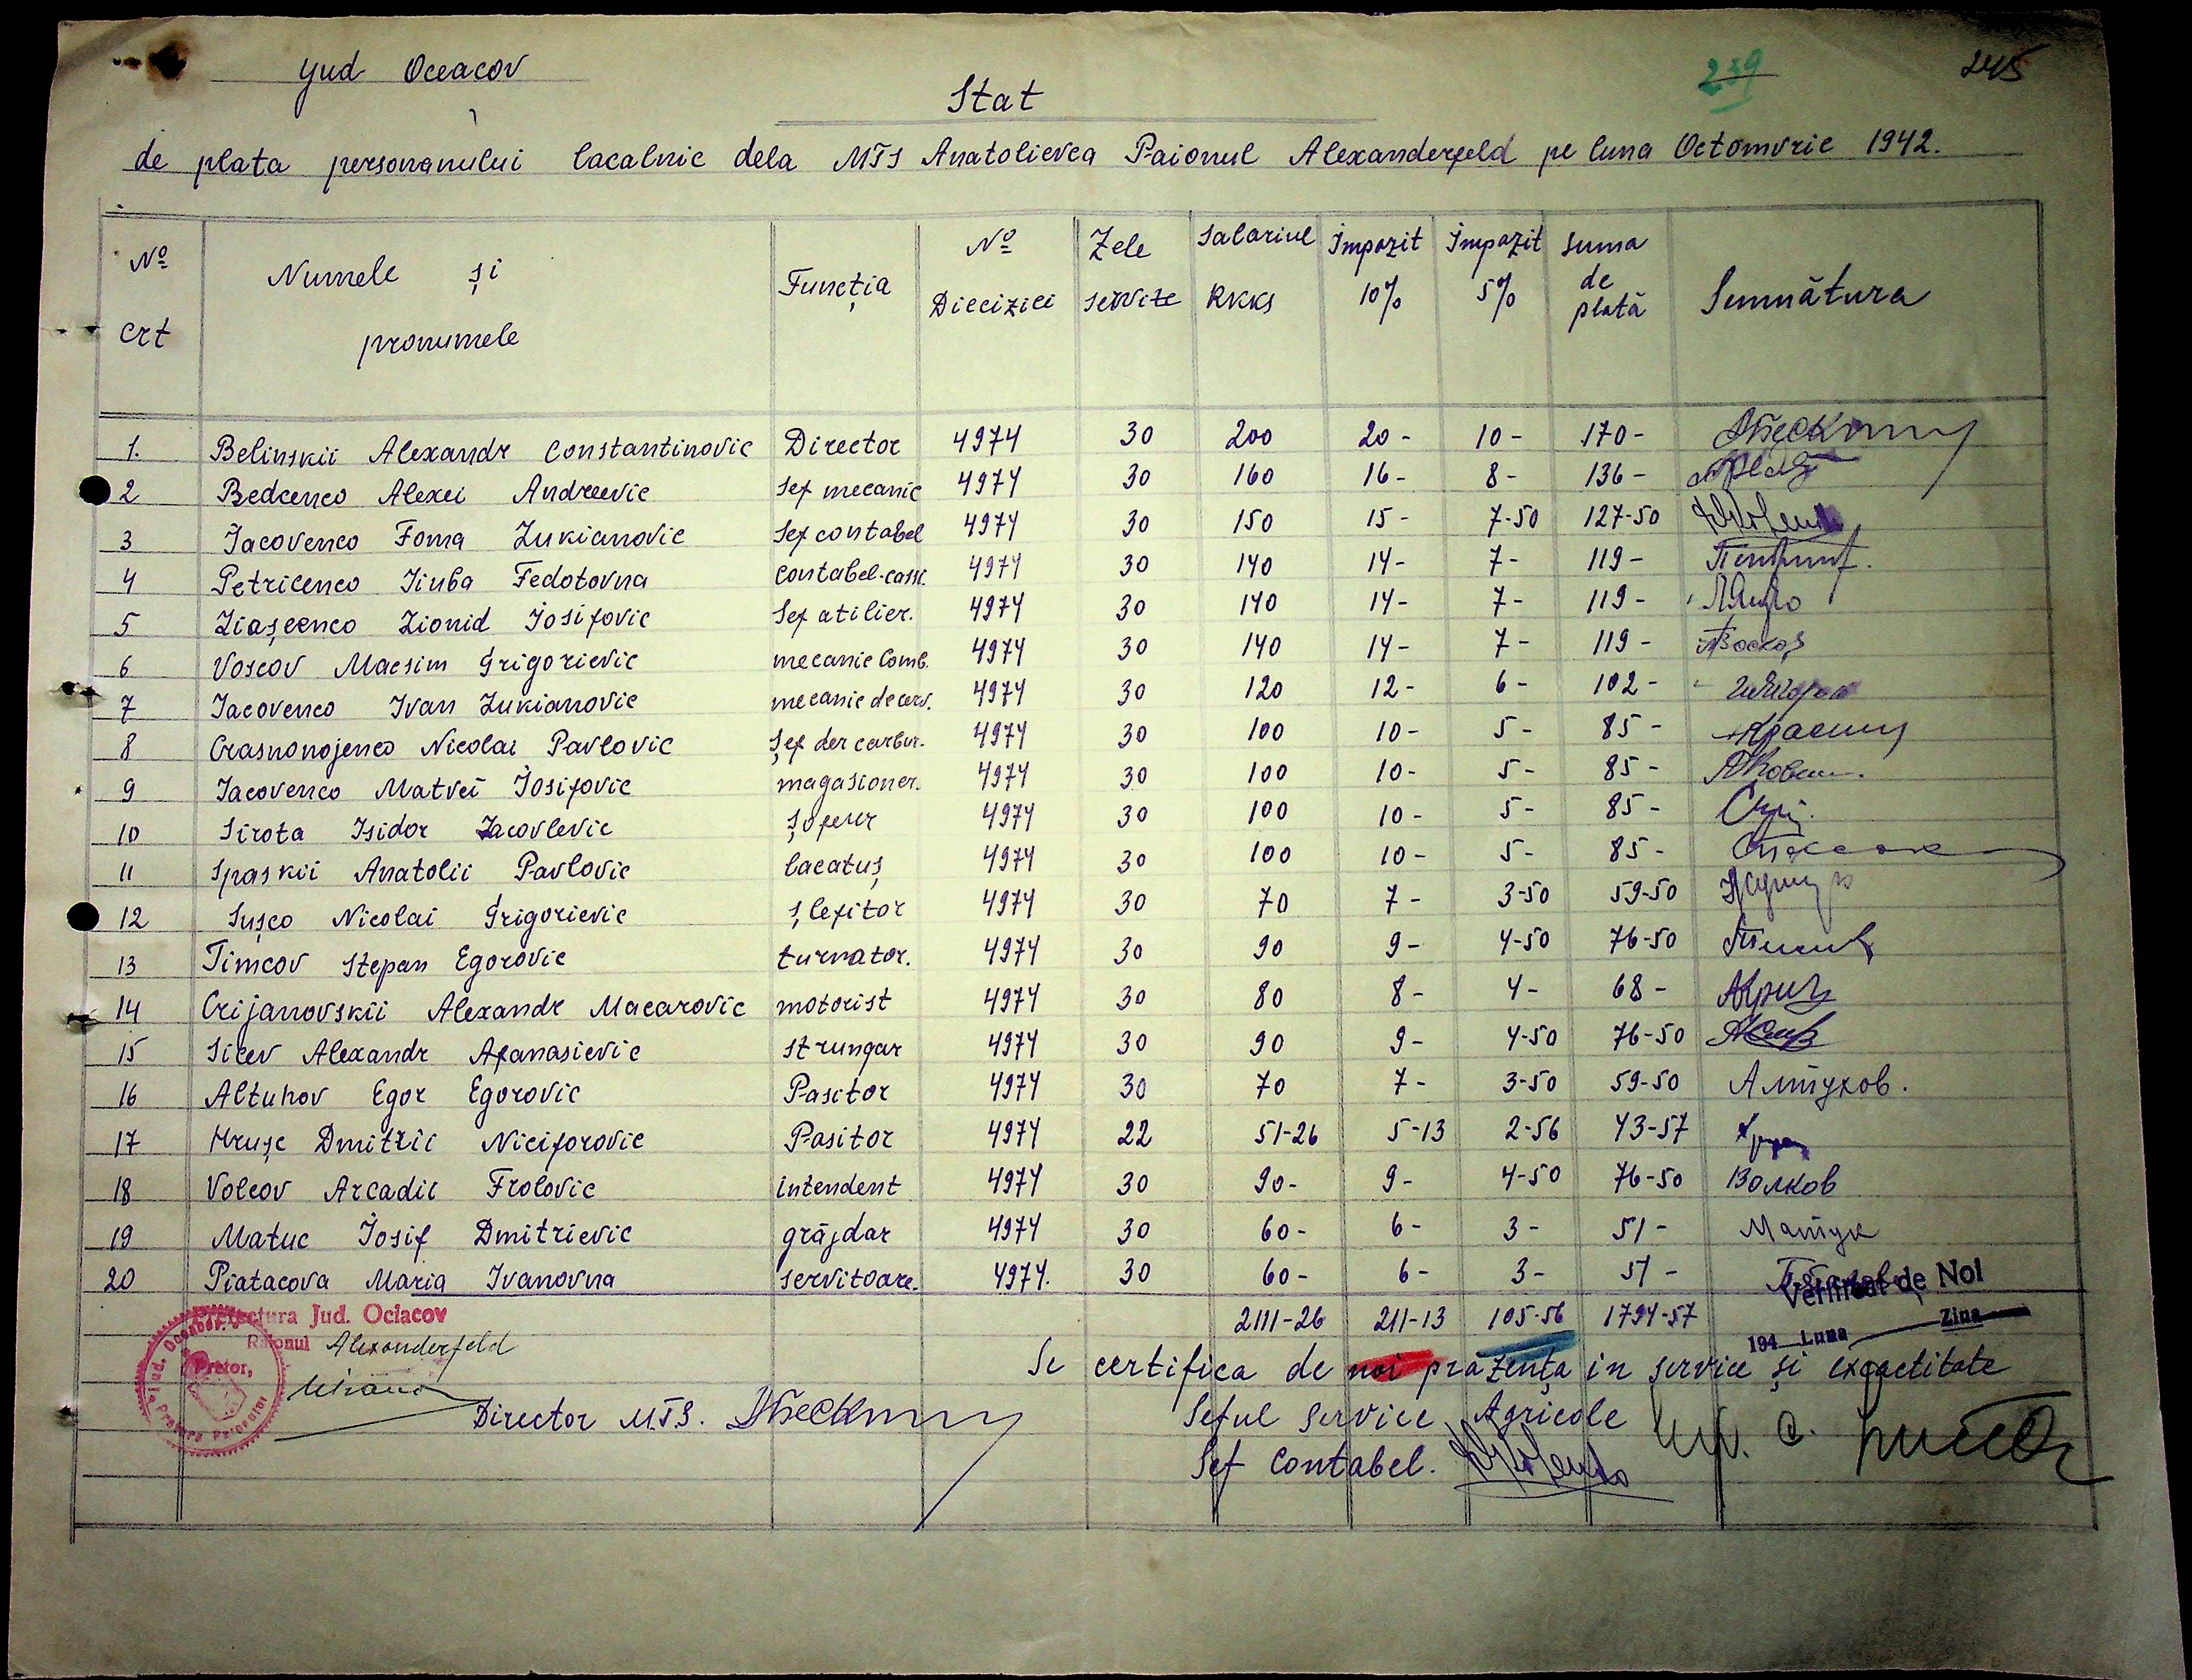 Jud Oceacov
239
245
Stat
de plata personanului lacalnic dela MTS Anatolievca Raionul Alexanderfeld pe luna Octomvrie 1942.
№ crt Numele și pronumele Funcția № Diecizici Zele servite Salariul RKKS Impozit 10% Impozit 5% Suma de plată Semnătura
1. Belinskii Alexandr Constantinovic Director 4974 30 200 20- 10- 170-
2 Bedcenco Alexei Andreevic Sef mecanic 4974 30 160 16- 8- 136-
3 Iacovenco Foma Lukianovic Sef contabel 4974 30 150 15- 7-50 127-50
4 Petricenco Liuba Fedotovna contabel-cass. 4974 30 140 14- 7- 119-
5 Liașcenco Lionid Iosifovic Sef atilier. 4974 30 140 14- 7- 119-
6 Voscov Macsim Grigorievic mecanic Comb. 4974 30 140 14- 7- 119-
7 Iacovenco Ivan Lukianovic mecanic de cerv. 4974 30 120 12- 6- 102-
8 Crasnonojenco Nicolai Pavlovic Șef der carbur. 4974 30 100 10- 5- 85-
9 Iacovenco Matvei Iosifovic magasioner. 4974 30 100 10- 5- 85-
10 Sirota Isidor Iacovlevic șofeur 4974 30 100 10- 5- 85-
11 Spaskii Anatolii Pavlovic lacatuș 4974 30 100 10- 5- 85-
12 Sușco Nicolai Grigorievic șlefitor 4974 30 70 7- 3-50 59-50
13 Timcov Stepan Egorovic turnator. 4974 30 90 9- 4-50 76-50
14 Crijanovskii Alexandr Macarovic motorist 4974 30 80 8- 4- 68-
15 Sicev Alexandr Afanasievic strungar 4974 30 90 9- 4-50 76-50
16 Altuhov Egor Egorovic Pasitor 4974 30 70 7- 3-50 59-50 Алтухов.
17 Hrușc Dmitrii Niciforovic Pasitor 4974 22 51-26 5-13 2-56 43-57
18 Volcov Arcadii Frolovic intendent 4974 30 90- 9- 4-50 76-50 Волков
19 Matuc Iosif Dmitrievic grăjdar 4974 30 60- 6- 3- 51- Матук
20 Piatacova Maria Ivanovna servitoare. 4974. 30 60- 6- 3- 51-
Verificat de Noi
2111-26 211-13 105-56 1794-57
194 Luna Ziua
Prefectura Jud. Ociacov
Raionul Alexanderfeld
Pretor,
Se certifica de noi prăzența in service și exqactitate
Director M.T.S.
Seful Service Agricole
Sef Contabel.